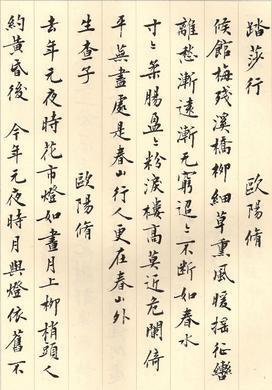 踏莎行　歐陽脩
候館梅殘溪橋柳細草熏風暖搖征轡
離愁漸遠漸無窮迢〻不斷如春水
寸〻柔腸盈〻粉淚樓高莫近危闌倚
平蕪盡處是春山行人更在春山外
生查子　歐陽脩
去年元夜時花市燈如晝月上柳梢頭人
約黃昏後　今年元夜時月與燈依舊不